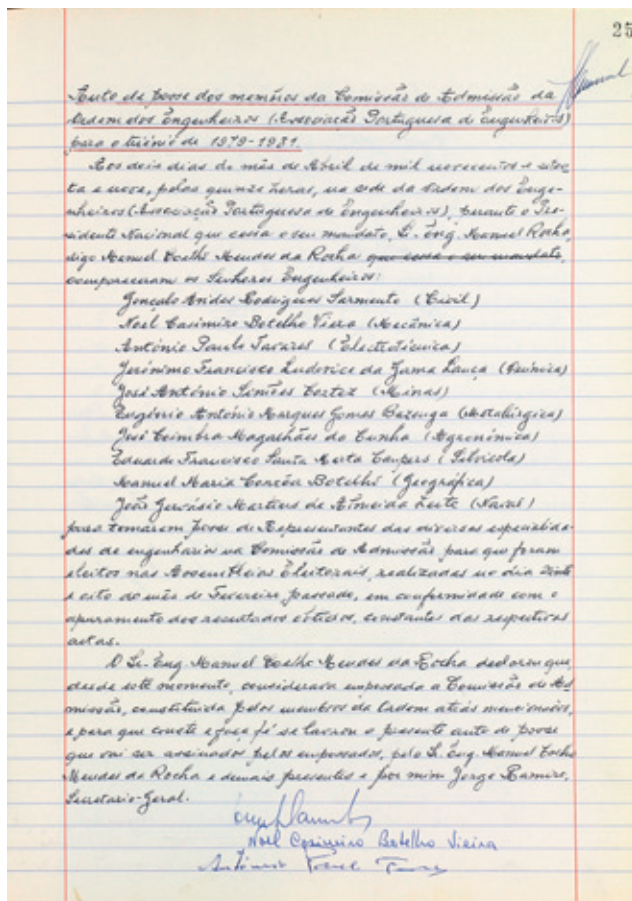 25
Auto de posse dos membros da Comissão de Admissão da
Ordem dos Engenheiros (Associação Portuguesa de Engenheiros)
para o triénio de 1979-1981.
Aos deis dias do mês de Abril de mil novecentos e seten-
ta e nove, pelas quinze horas, na sede da Ordem dos Enge-
nheiros (Associação Portuguesa de Engenheiros), perante o Pre-
sidente Nacional que cessa o seu mandato, Sr. Eng. Manuel Rocha,
digo Manuel Coelho Mendes da Rocha que cessa o seu mandato,
compareceram os Senhores Engenheiros:
Gonçalo Rodrigues Sarmento (Civil)
Noel Casimiro Botelho Vieira (Mecânica)
António Paulo Tavares (Electrotécnica)
Jerónimo Francisco Ludovice da Gama Lança (Química)
José António Simões Cortez (Minas)
Eugénio António Marques Gomes Bazenga (Metalúrgica)
José Coimbra Magalhães da Cunha (Agronómica)
Eduardo Francisco Santa Marta Campers (Silvícola)
Manuel Maria Corrêa Botelho (Geográfica)
João Gervásio Martins de Almeida Leite (Naval)
para tomarem posse de Representantes das diversas especialida-
des de engenharia na Comissão de Admissão para que foram
eleitos nas Assembleias Eleitorais, realizadas no dia vinte
e oito do mês de Fevereiro passado, em conformidade com o
apuramento dos resultados obtidos, constantes das respectivas
actas.
O Sr. Eng. Manuel Coelho Mendes da Rocha declarou que,
desde este momento, considerava empossada a Comissão de Ad-
missão, constituída pelos membros da Ordem atrás mencionados,
e para que conste e faça fé se lavrou o presente auto de posse
que vai ser assinado pelos empossados, pelo Sr. Eng. Manuel Coelho
Mendes da Rocha e demais presentes e por mim Jorge Ramiro,
Secretário-Geral.
Noel Casimiro Botelho Vieira
António